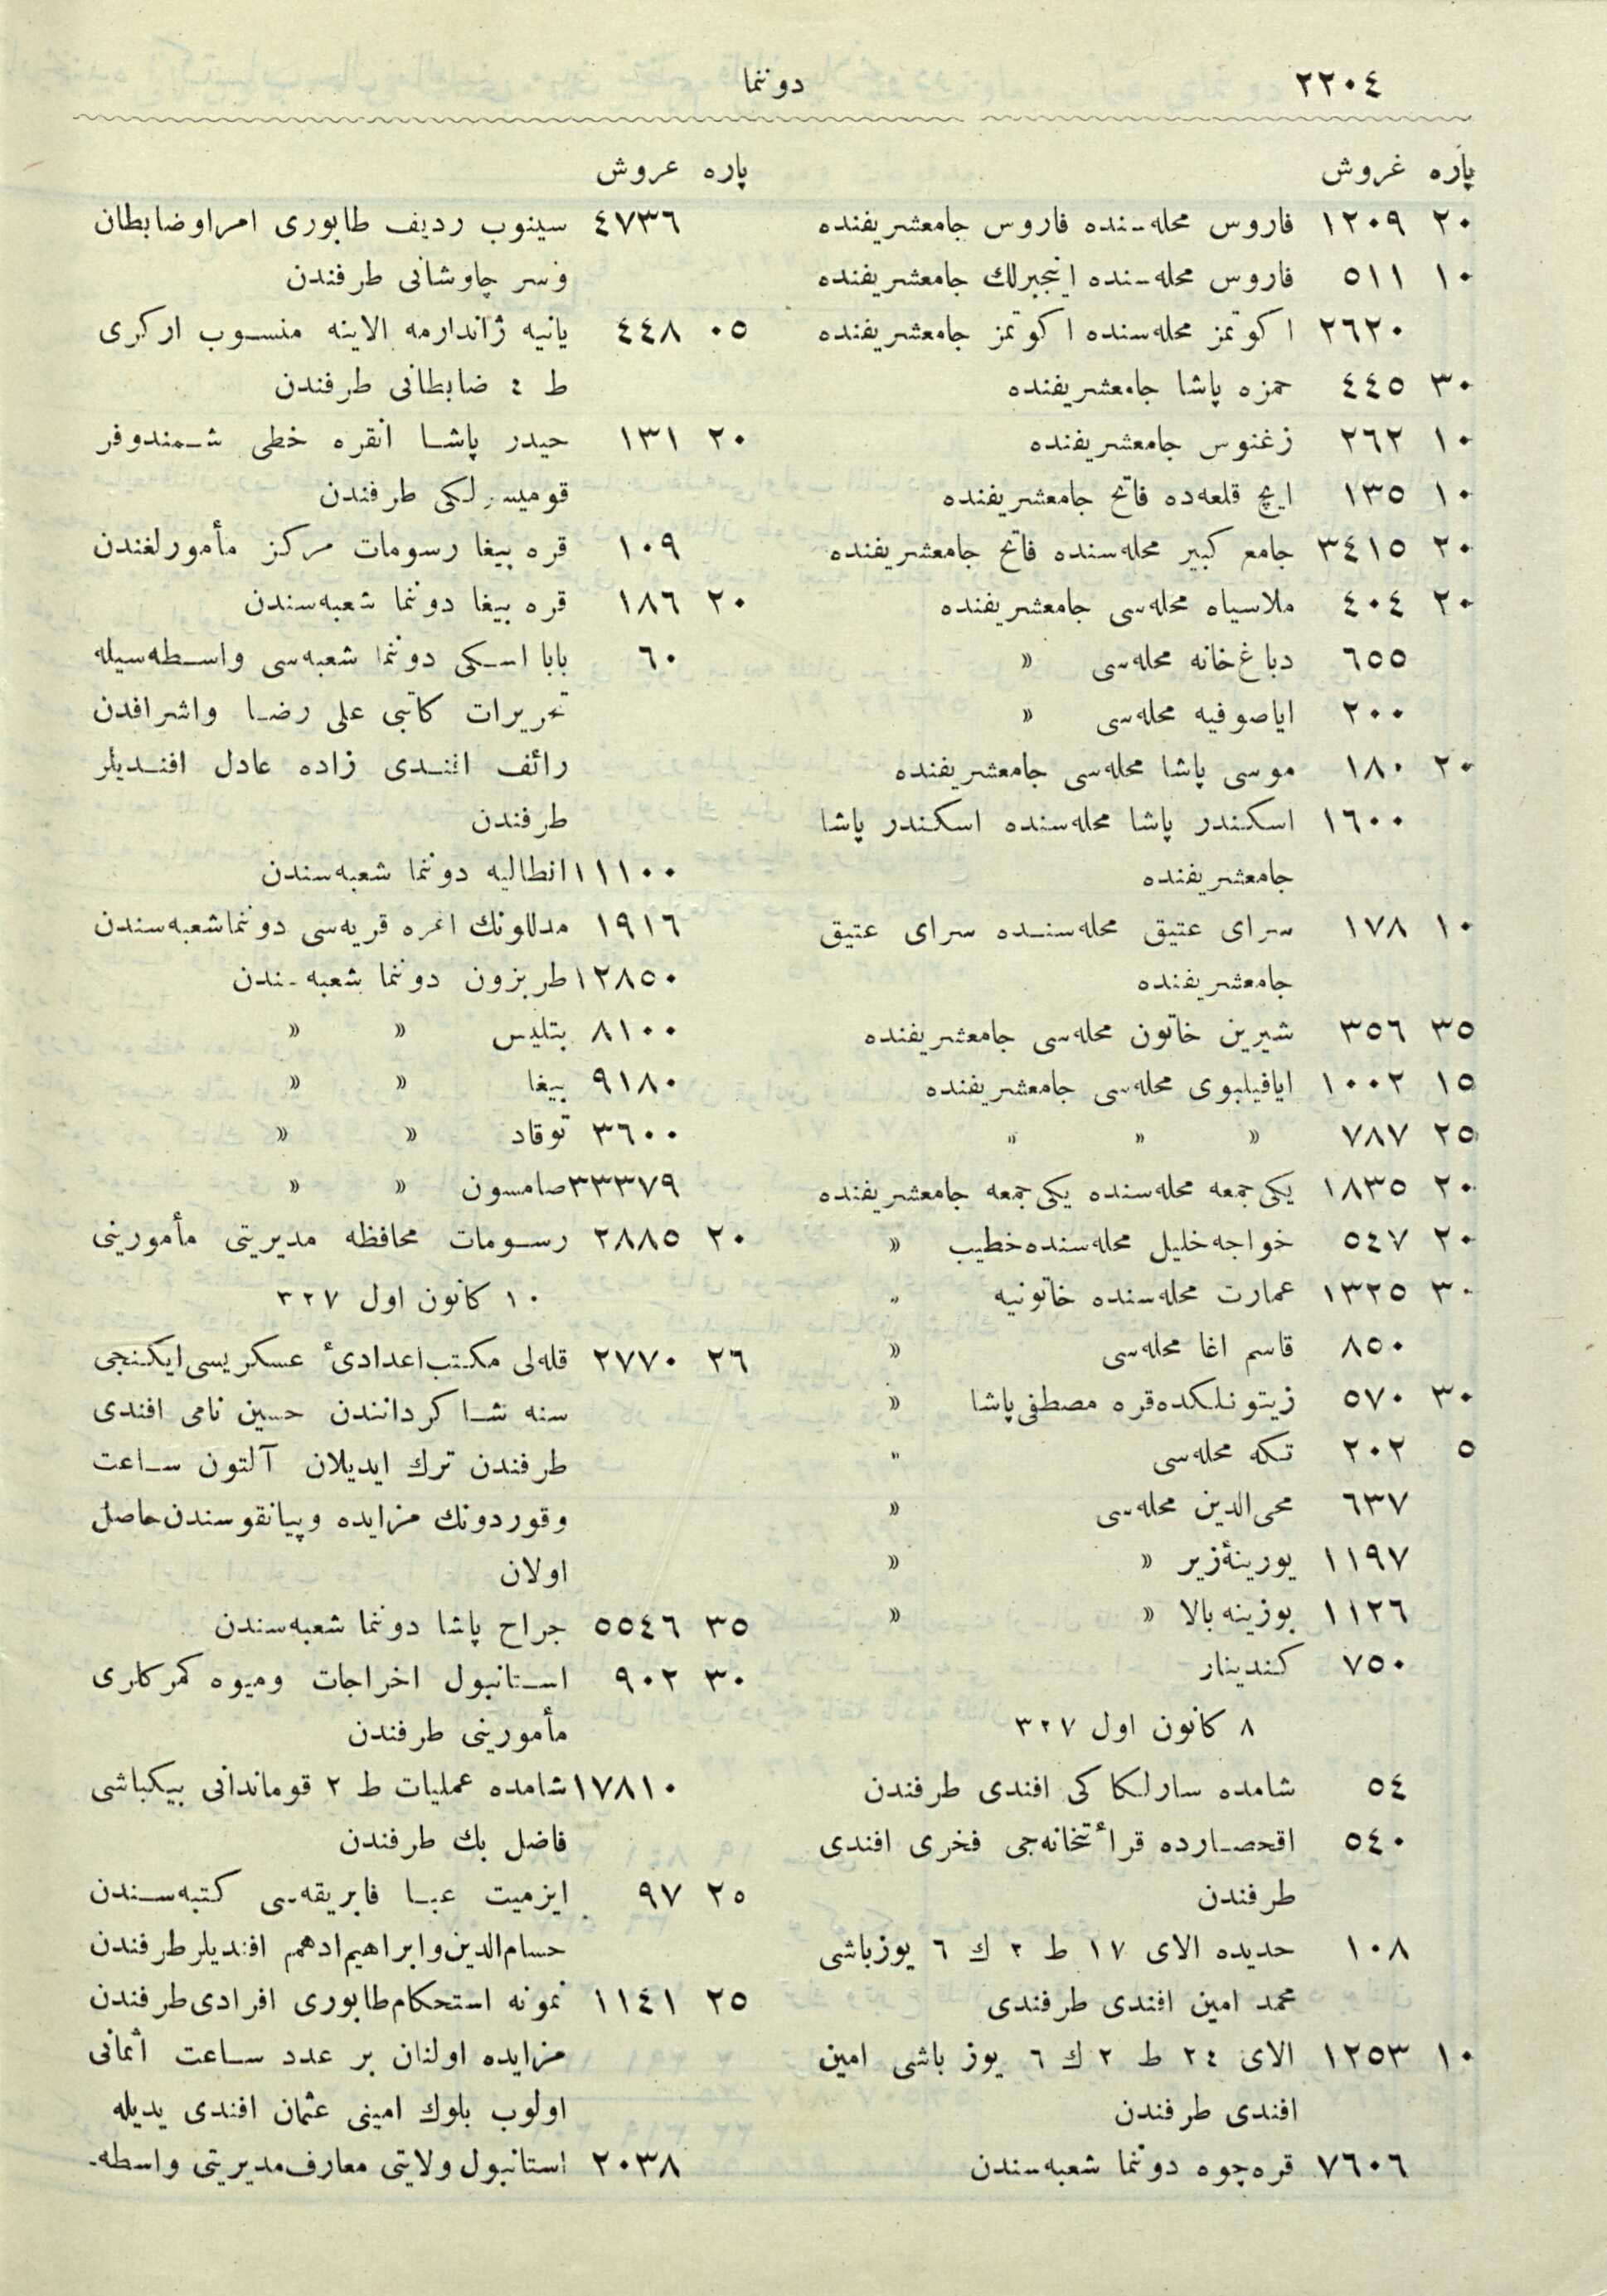 ٢٢٠٤
دوننما
پاره غروش
٢٠ ١٢٠٩ فاروس محله‌سنده فاروس جامعشریفنده
١٠ ٥١١ فاروس محله‌سنده انجیرلك جامعشریفنده
٢٦٢٠ اكوتمز محله‌سنده اكوتمز جامعشریفنده
٣٠ ٤٤٥ حمزه پاشا جامعشریفنده
١٠ ٢٦٢ زغنوس جامعشریفنده
١٠ ١٣٥ ایچ قلعه‌ده فاتح جامعشریفنده
٢٠ ٣٤١٥ جامع كبیر محله‌سنده فاتح جامعشریفنده
٢٠ ٤٠٤ ملاسیاه محله‌سی جامعشریفنده
٦٥٥ دباغ‌خانه محله‌سی »
٢٠٠ ایاصوفیه محله‌سی »
٢٠ ١٨٠ موسی پاشا محله‌سی جامعشریفنده
١٦٠٠ اسكندر پاشا محله‌سنده اسكندر پاشا
جامعشریفنده
١٠ ١٧٨ سرای عتیق محله‌سنده سرای عتیق
جامعشریفنده
٣٥ ٣٥٦ شیرین خاتون محله‌سی جامعشریفنده
١٥ ١٠٠٢ ایافیلبوی محله‌سی جامعشریفنده
٢٥ ٧٨٧ » » »
٢٠ ١٨٣٥ یكی جمعه محله‌سنده یكی جمعه جامعشریفنده
٢٠ ٥٤٧ خواجه خلیل محله‌سنده خطیب »
٣٠ ١٣٢٥ عمارت محله‌سنده خاتونیه »
٨٥٠ قاسم اغا محله‌سی »
٣٠ ٥٧٠ زیتونلكده قره مصطفی پاشا »
٥ ٢٠٢ تكه محله‌سی »
٦٣٧ محی‌الدین محله‌سی »
١١٩٧ یورینۀ زیر » »
١١٢٦ بوزینه بالا » »
٧٥٠ كندینار
٨ كانون اول ٣٢٧
٥٤ شامده سارلكاكی افندی طرفندن
٥٤٠ اقحصارده قرأتخانه‌جی فخری افندی
طرفندن
١٠٨ حدیده الای ١٧ ط ٢ ك ٦ یوزباشی
محمد امین افندی طرفندی
١٠ ١٢٥٣ الای ٢٤ ط ٢ ك ٦ یوز باشی امین
افندی طرفندن
٧٦٠٦ قره‌چوه دوننما شعبه‌سندن
پاره عروش
٤٧٣٦ سینوب ردیف طابوری امراوضابطان
وسر چاوشانی طرفندن
٠٥ ٤٤٨ یانیه ژاندارمه الاینه منسوب اركری
ط ٤ ضابطانی طرفندن
٢٠ ١٣١ حیدر پاشا انقره خطی شمندوفر
قومیسرلكی طرفندن
١٠٩ قره بیغا رسومات مركز مأمورلغندن
٢٠ ١٨٦ قره بیغا دوننما شعبه‌سندن
٦٠ بابا اسكی دوننما شعبه‌سی واسطه‌سیله
تحریرات كاتبی علی رضا واشرافدن
رائف افندی زاده عادل افندیلر
طرفندن
١١١٠٠ انطالیه دوننما شعبه‌سندن
١٩١٦ مدللونك اغره قریه‌سی دوننما شعبه‌سندن
١٢٨٥٠ طربزون دوننما شعبه‌سندن
٨١٠٠ بتلیس » »
٩١٨٠ بیغا » »
٣٦٠٠ توقاد » »
٣٣٣٧٩ صامسون » »
٢٠ ٢٨٨٥ رسومات محافظه مدیریتی مأمورینی
١٠ كانون اول ٣٢٧
٢٦ ٢٧٧٠ قله‌لی مكتب اعدادیٔ عسكریسی ایكنجی
سنه شاكردانندن حسین نامی افندی
طرفندن ترك ایدیلان آلتون ساعت
وقوردونك مزایده وپیانقوسندن حاصل
اولان
٣٥ ٥٥٤٦ جراح پاشا دوننما شعبه‌سندن
٣٠ ٩٠٢ استانبول اخراجات ومیوه كمركلری
مأمورینی طرفندن
١٧٨١٠ شامده عملیات ط ٢ قوماندانی بیكباشی
فاضل بك طرفندن
٢٥ ٩٧ ایزمیت عبا فابریقه‌سی كتبه‌سندن
حسام‌الدین وابراهیم ادهم افندیلر طرفندن
٢٥ ١١٤١ نمونه استحكام طابوری افرادی طرفندن
مزایده اولنان بر عدد ساعت اثمانی
اولوب بلوك امینی عثمان افندی یدیله
٢٠٣٨ استانبول ولایتی معارف مدیریتی واسطه‌-